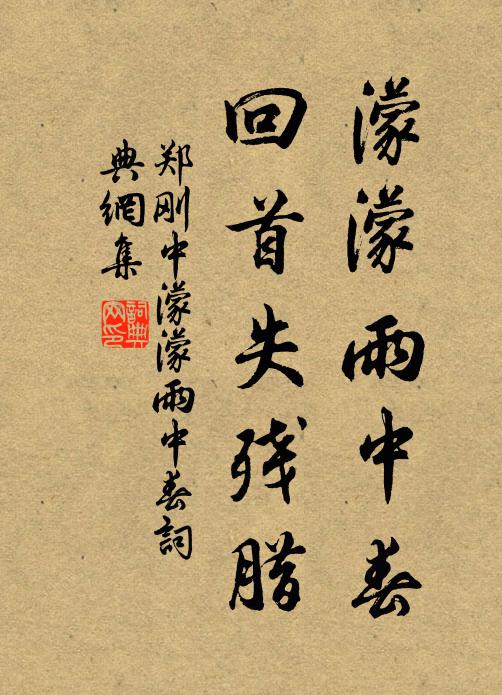 濛濛雨中春
回首失残腊
郑刚中濛濛雨中春詞
典網集
詞典
网印